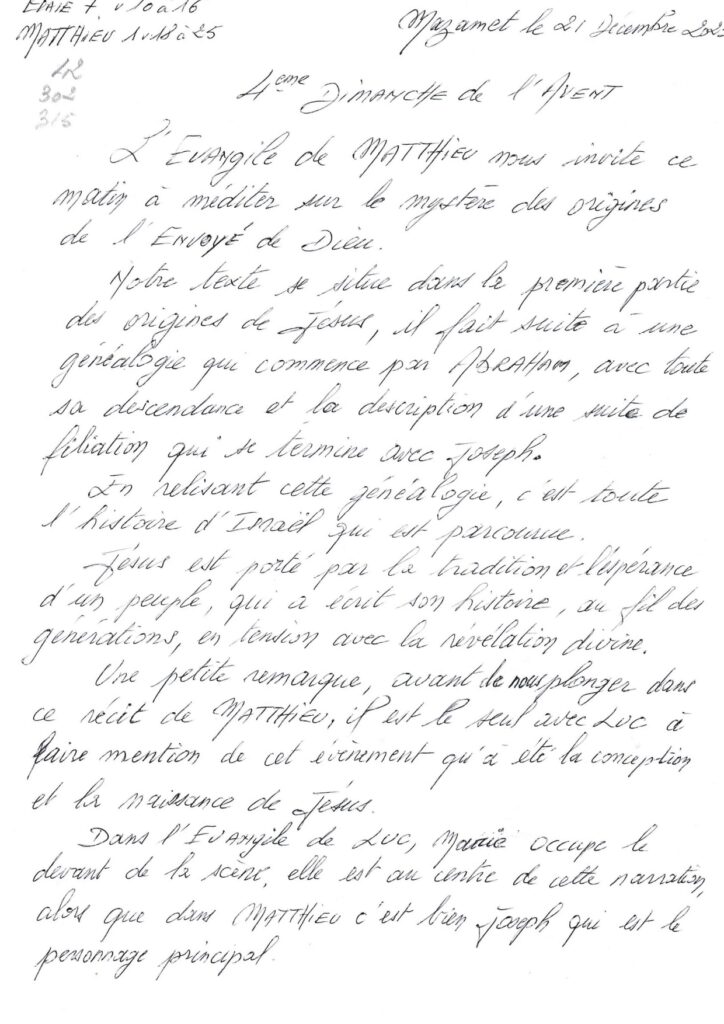 ESAIE 7. v 10 à 16
MATTHIEU 1 v 18 à 25
Mazamet le 21 Décembre
42
302
315
4ème DIMANCHE de l'AVENT
L'EVANGILE de MATTHIEU nous invite ce
matin à méditer sur le mystère des origines
de l'ENVOYÉ de DIEU.
Notre texte se situe dans la première partie
des origines de Jésus, il fait suite à une
généalogie qui commence par ABRAHAM, avec toute
sa descendance et la description d'une suite de
filiation qui se termine avec Joseph.
En relisant cette généalogie, c'est toute
l'histoire d'Israël qui est parcourue.
Jésus est porté par la tradition et l'espérance
d'un peuple, qui a écrit son histoire, au fil des
générations, en tension avec la révélation divine.
Une petite remarque, avant de nous plonger dans
ce récit de MATTHIEU, il est le seul avec LUC à
faire mention de cet évènement qu'à été la conception
et la naissance de Jésus.
Dans l'EVANGILE de LUC, Marie occupe le
devant de la scène, elle est au centre de cette narration,
alors que dans MATTHIEU c'est bien Joseph qui est le
personnage principal.